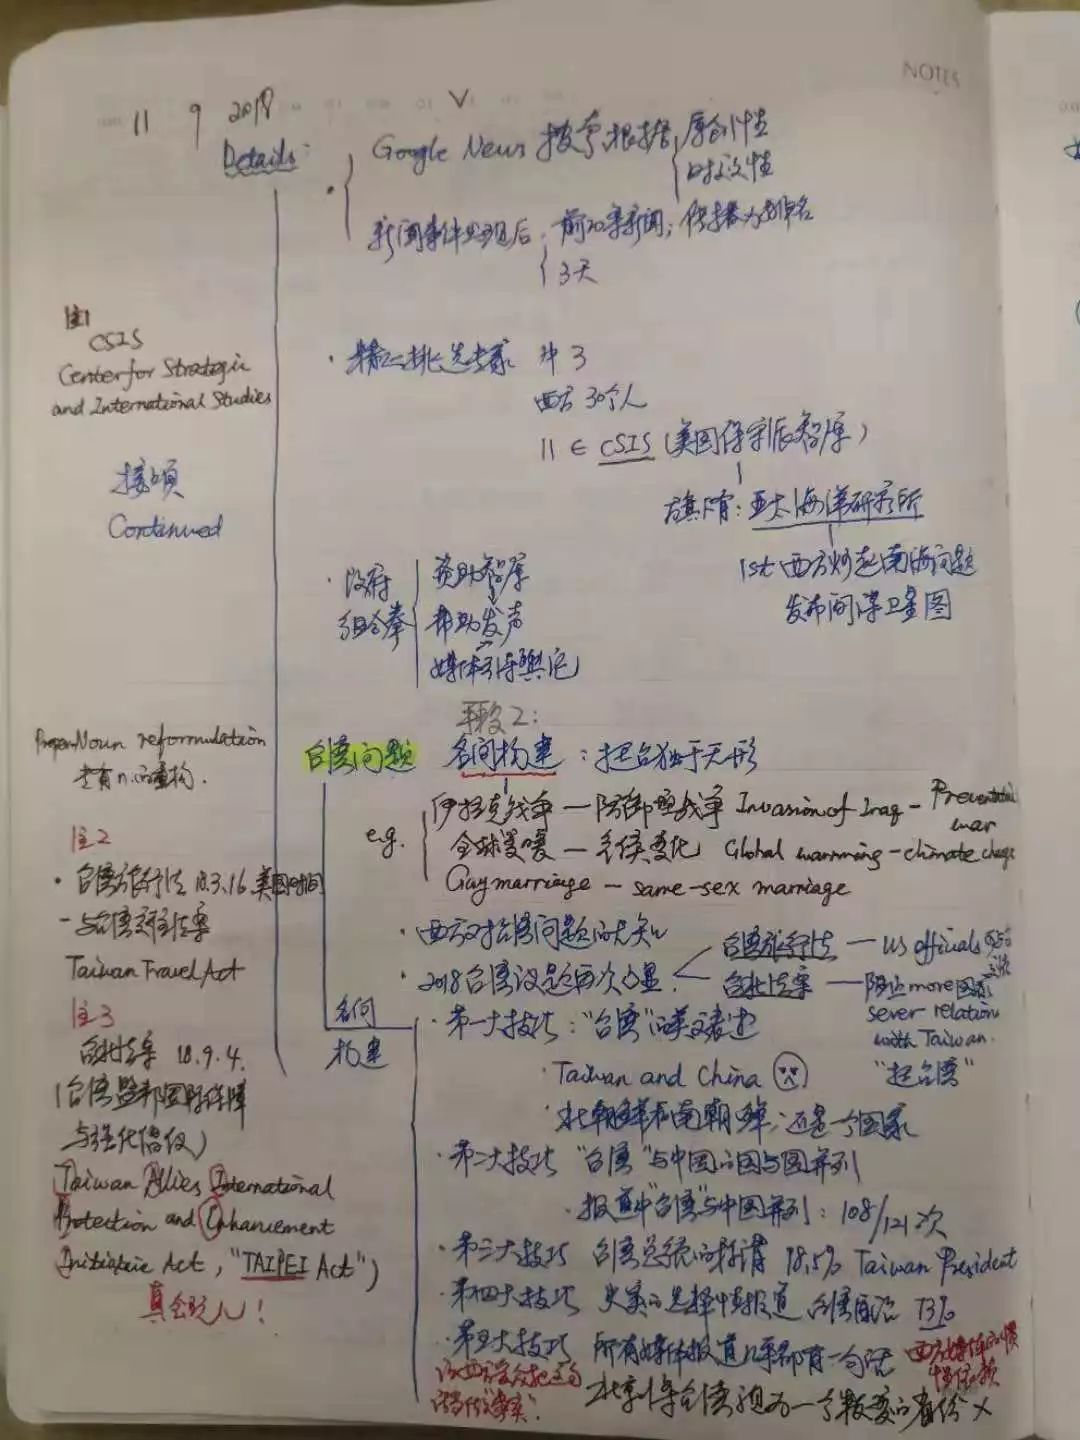 NOTES
11 9 2018
Details:
Google News 搜索,根据 原创性
时效性
新闻事件出现后, 前20条新闻,传播力排名
3天
注1
CSIS
Center for Strategic
and International Studies
接上页
Continued
精心挑选专家 中 3
西方 30个人
11 ∈ CSIS (美国保守派智库)
旗下有: 亚太海洋研究所
1st 西方炒起南海问题
发布间谍卫星图
政府
组合拳
资助智库
帮助发声
媒体引导舆论
Proper Noun reformulation
专有n.的重构.
手段2:
台湾问题 名词构建 : 把台独于无形
e.g.
伊拉克战争 — 防御型战争 Invasion of Iraq - Preventative
war
全球变暖 — 气候变化 Global warmming - climate change
Gay marriage — same-sex marriage
注2
台湾旅行法 18.3.16.美国时间
Taiwan Travel Act
西方对台湾问题的无知
2018台湾议题再次凸显.
台湾旅行法 — US officials
台北法案 — 阻止more国家
sever relation
with Taiwan.
"挺台湾"
名词
构建
第一大技巧: "台湾"的英文表述
Taiwan and China
北朝鲜和南朝鲜;还是一个国家
注3
台北法案 18.9.4.
(台湾盟邦国际保障
与强化倡议)
Taiwan Allies International
Protection and Enhancement
Initiative Act, "TAIPEI Act")
真会玩儿!
第二大技巧 "台湾"与中国的国与国并列
报道中"台湾"与中国并列: 108/121次
第三大技巧 台湾总统的称谓 18.5% Taiwan President
第四大技巧 史实的选择性报道 台湾自治 73%
第五大技巧 所有媒体报道几乎都有一句话
西方媒体的惯
让西方受众把这句
话当作"事实".
北京将台湾视为一个叛变的省份 ×